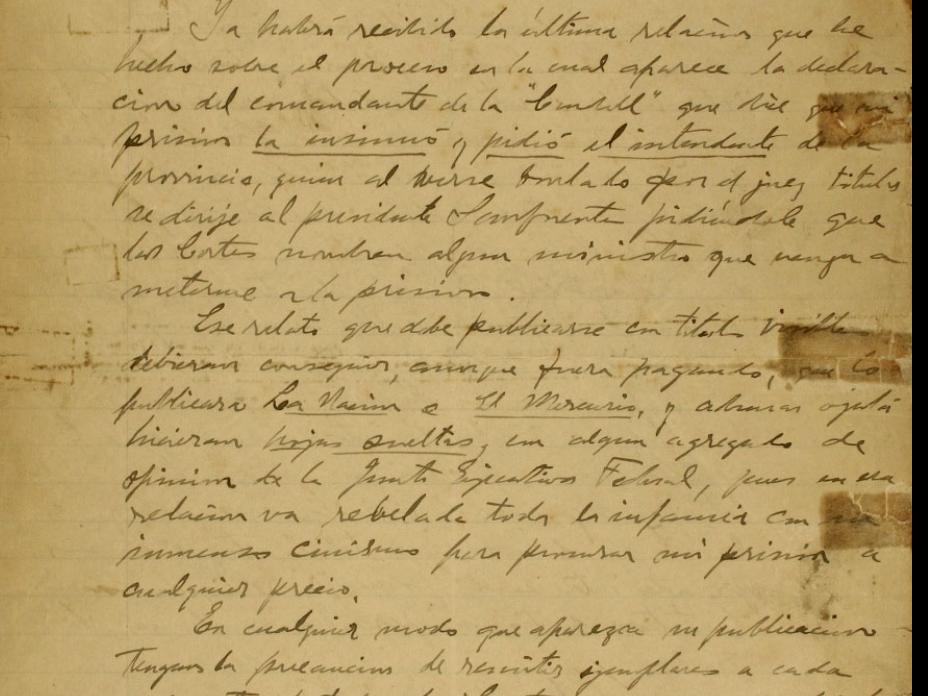 Ya habrá recibido la última relación que he
hecho sobre el proceso en la cual aparece la declara-
cion del comandante de la "Condell" que dice que mi
prision la insinuó y pidió el intendente de la
provincia, quien al verse burlado por el juez titular
se dirije al presidente Sanfuentes pidiéndole que
las Cortes nombren algun ministro que venga a
meterme a la prision.
Ese relato que debe publicarse con titulo visible
debieran conseguir, aunque fuera pagando, que lo
publicara La Nacion o El Mercurio, y ademas ojalá
hicieran hojas sueltas, con algun agregado de
opinion de la Junta Ejecutiva Federal, pues en esa
relacion va rebelada toda la infamia con un
inmenso cinismo para procurar mi prision a
cualquier precio.
En cualquier modo que aparezca su publicacion
tengan la precaucion de remitir ejemplares a cada